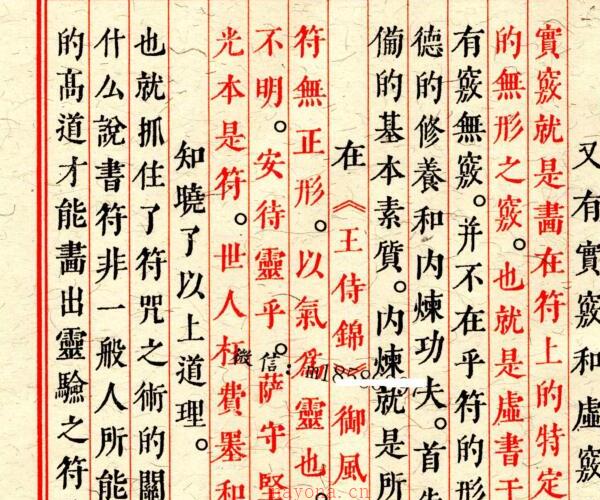 又有實竅和虛竅
實竅就是畵在符上的特定
的無形之竅。也就是虛書于
有竅無竅。并不在乎符的形
德的修養和内煉功夫。首先
俻的基本素質。内煉就是所
在《王侍錦《御風
符無正形。以氣爲靈也
不明。安待靈乎。薩守堅
光本是符。世人枉費墨和
知曉了以上道理。
也就抓住了符咒之術的關
什么說書符非一般人所能
的髙道才能畵出靈驗之符
微信：m18
ayopa.cn